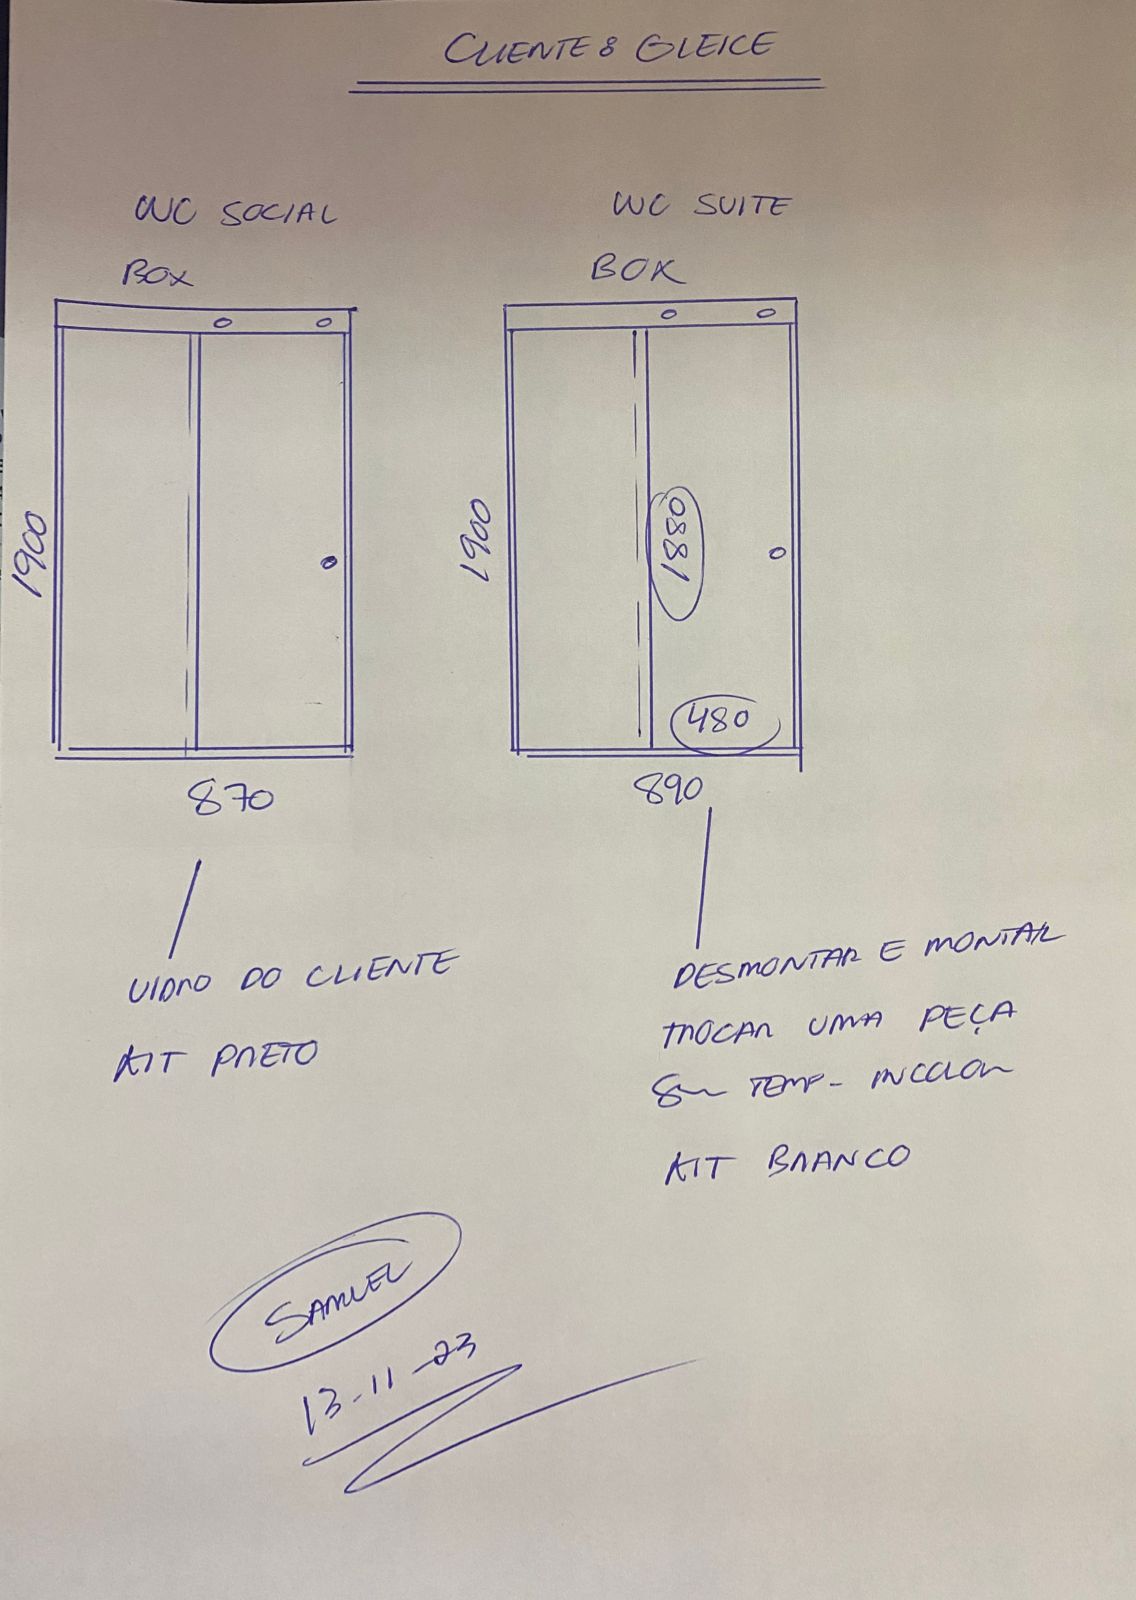 CLIENTE: GLEICE
WC SOCIAL
BOX
1900
870
VIDRO DO CLIENTE
KIT PRETO
WC SUITE
BOX
1900
1880
480
890
DESMONTAR E MONTAR
TROCAR UMA PEÇA
8m TEMP- INCOLOR
KIT BRANCO
SAMUEL
13-11-23